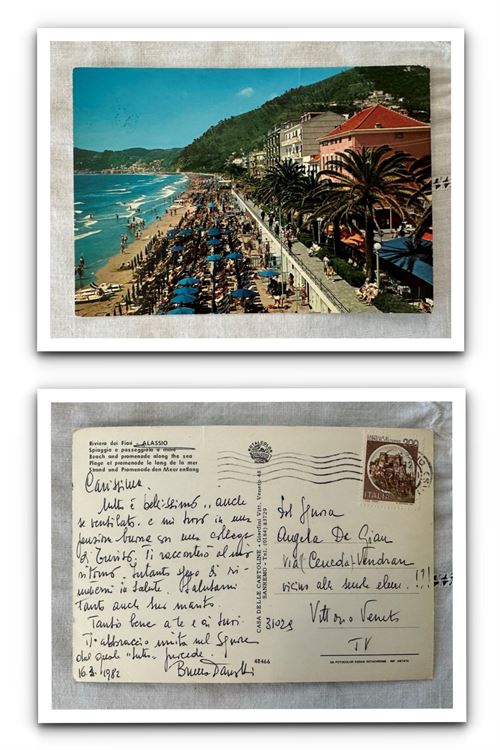 Riviera dei Fiori - ALASSIO
Spiaggia e passeggiata a mare
Beach and promenade along the sea
Plage et promenade le long de la mer
Strand und Promenade den Meer entlang
Carissima,
tutto è bellissimo, anche
se ventilato. e mi trovo in una
pensione buona con una collega
di Treviso. Ti racconterò al mio
ritorno. Intanto spero di ri-
mettermi in salute. Salutami
tanto anche tuo marito.
Tanto bene a te e ai tuoi.
Ti abbraccio unita nel Signore
dal quale "tutto" procede.
16.3. 1982 Bruna
CASA DELLE CARTOLINE - Gestini Vitt. Veneto 48
SANREMO - Tel. (0184) 83729
48466
ITALIA
200
Sig. Signora
Angela De Gian
via Ceneda - Vendran
vicino alle scuole elem. !?!
31029 Vittorio Veneto
TV